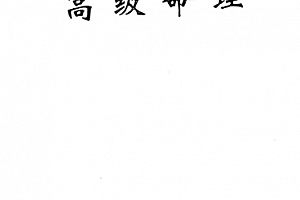 高级命理